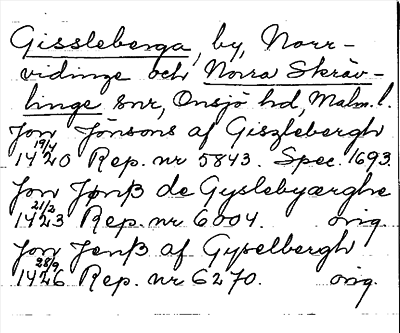 Gissleberga, by, Norr-
vidinge och Norra Skräv-
linge snr, Onsjö hd, Malm.l.
Jon Jönsons af Giszlebergh
19/4
1420 Rep. nr 5843. Spec. 1693.
Jon Jønß de Gyslebyærghe
21/2
1423 Rep. nr 6004. orig.
Jon Jenß af Gyselbergh
28/9
1426 Rep. nr 6270. orig.